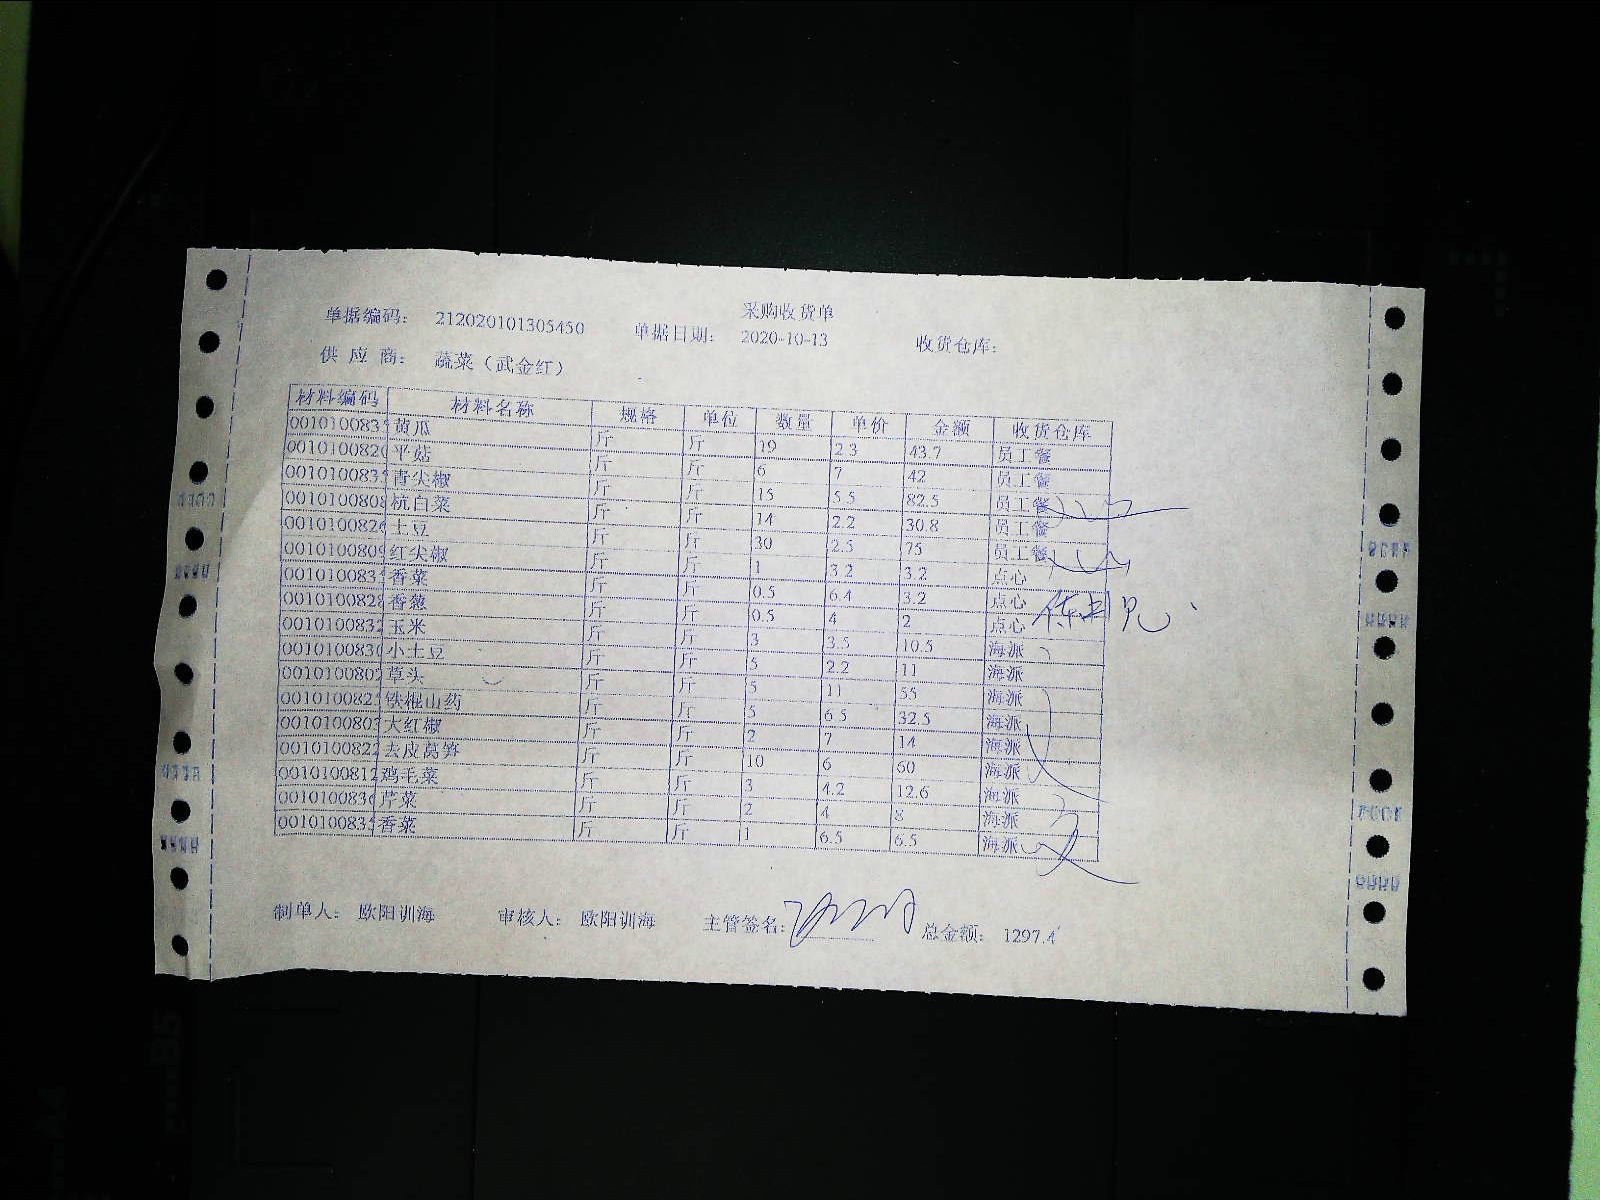 采购收货单
单据编码: 212020101305450 单据日期: 2020-10-13 收货仓库:
供应商: 蔬菜（武金红）
材料编码 材料名称 规格 单位 数量 单价 金额 收货仓库
001010083 黄瓜 斤 斤 19 2.3 43.7 员工餐
001010082 平菇 斤 斤 6 7 42 员工餐
001010083 青尖椒 斤 斤 15 5.5 82.5 员工餐
001010080 杭白菜 斤 斤 14 2.2 30.8 员工餐
001010082 土豆 斤 斤 30 2.5 75 员工餐
001010080 红尖椒 斤 斤 1 3.2 3.2 点心
001010083 香菜 斤 斤 0.5 6.4 3.2 点心
001010082 香葱 斤 斤 0.5 4 2 点心
001010083 玉米 斤 斤 3 3.5 10.5 海派
001010083 小土豆 斤 斤 5 2.2 11 海派
001010080 草头 斤 斤 5 11 55 海派
001010082 铁棍山药 斤 斤 5 6.5 32.5 海派
001010080 大红椒 斤 斤 2 7 14 海派
001010082 去皮莴笋 斤 斤 10 6 60 海派
001010081 鸡毛菜 斤 斤 3 4.2 12.6 海派
001010083 芹菜 斤 斤 2 4 8 海派
001010083 香菜 斤 斤 1 6.5 6.5 海派
制单人: 欧阳训海 审核人: 欧阳训海 主管签名: 总金额: 1297.4